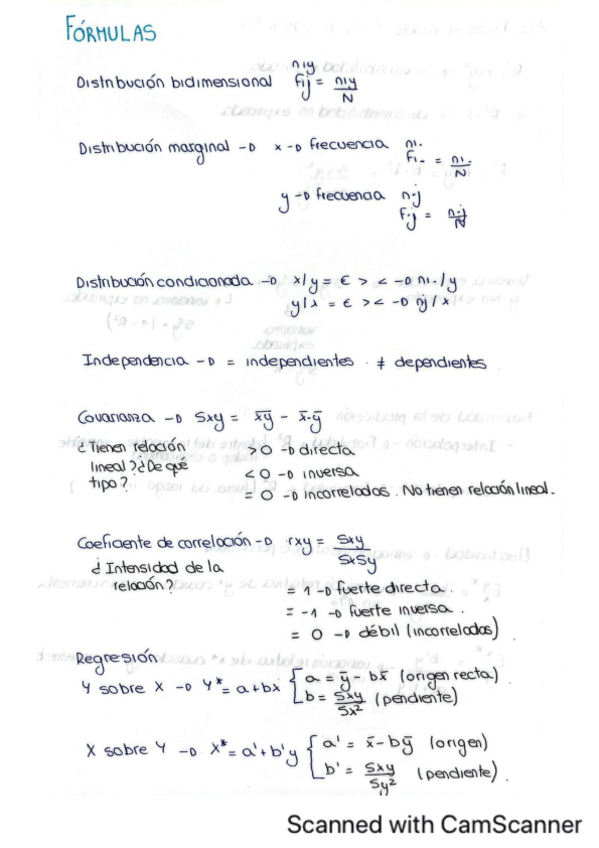 FÓRMULAS
Distribución bidimensional niy
fij = niy/N
Distribución marginal → x → frecuencia ni.
Fi. = ni./N
y → frecuencia n.j
F.j = n.j/N
Distribución condicionada → x/y = € > < → ni./y
y/x = € > < → nj/x
Independencia → = independientes . ≠ dependientes
Covarianza → Sxy = x̄ȳ - x̄·ȳ
¿Tienen relación lineal? ¿De qué tipo?
>0 → directa
<0 → inversa
=0 → incorrelados. No tienen relación lineal.
Coeficiente de correlación → rxy = Sxy/SxSy
¿Intensidad de la relación?
= 1 → fuerte directa.
= -1 → fuerte inversa.
= 0 → débil (incorrelados)
Regresión
Y sobre X → Y* = a+bx { a = ȳ - bx̄ (origen recta)
b = Sxy/Sx² (pendiente)
X sobre Y → X* = a'+b'y { a' = x̄ - bȳ (origen)
b' = Sxy/Sy² (pendiente).
Scanned with CamScanner